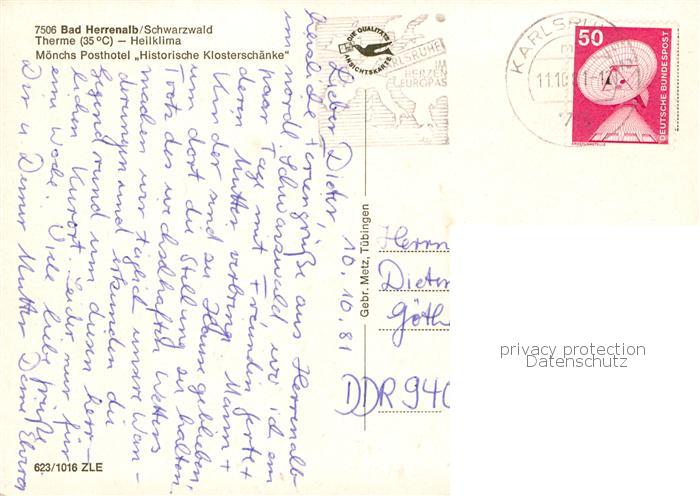 7506 Bad Herrenalb/Schwarzwald
Therme (35 °C) — Heilklima
Mönchs Posthotel „Historische Klosterschänke“
DIE QUALITÄTS
ANSICHTSKARTE
KARLSRUHE
IM
HERZEN
EUROPAS
KARLSRUHE
11.10.
50
DEUTSCHE BUNDESPOST
10.10.81
Lieber Dieter,
herzliche Feriengrüße aus Herrenalb
im nördl. Schwarzwald wo ich ein
paar Tage mit Freundin Gerte +
deren Mutter verbringe. Mann +
Kinder sind zu Hause geblieben,
um dort die Stellung zu halten.
Trotz des wechselhaften Wetters
machen wir täglich unsere Wan-
derungen und erkunden die
Gegend rund um diesen herr-
lichen Kurort. Leider nur für
eine Woche. Viele liebe Grüße
Dir u. Deiner Mutter Deine
Gebr. Metz, Tübingen
Herrn
Dieter
Göth
DDR 940
privacy protection
Datenschutz
623/1016 ZLE